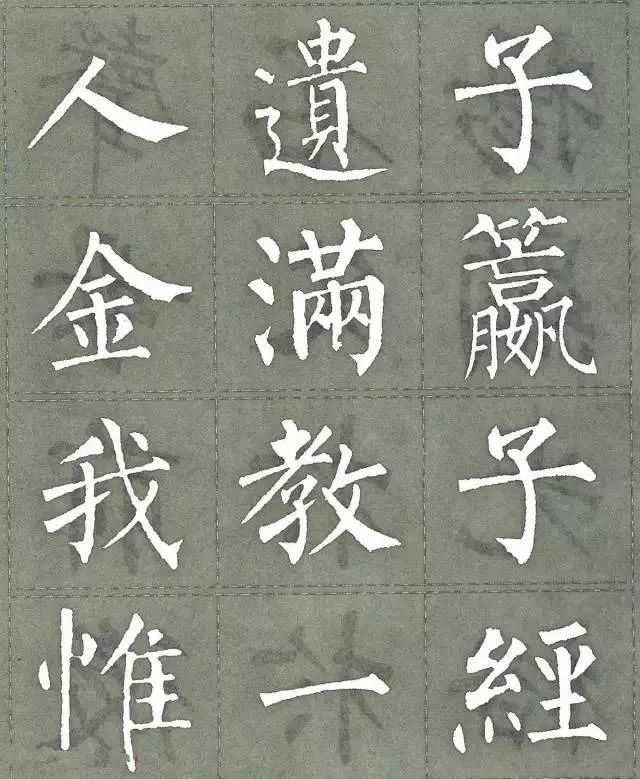 人遺子
金滿籯
我教子
惟一經